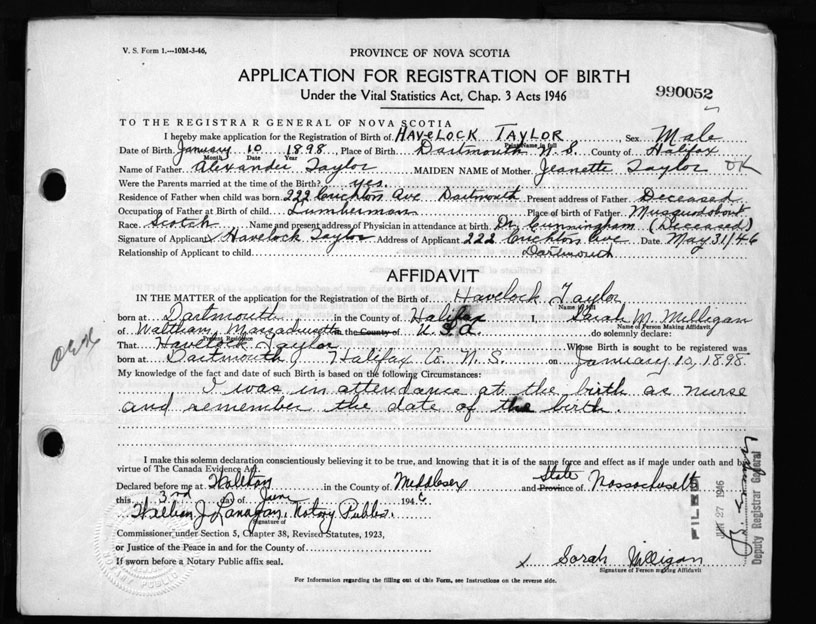 V. S. Form 1.—10M-3-46.
PROVINCE OF NOVA SCOTIA
APPLICATION FOR REGISTRATION OF BIRTH
Under the Vital Statistics Act, Chap. 3 Acts 1946
990052
TO THE REGISTRAR GENERAL OF NOVA SCOTIA
I hereby make application for the Registration of Birth of HAVELOCK TAYLOR Sex Male
Print Name in full
Date of Birth January 10 1898 Place of Birth Dartmouth N.S. County of Halifax
Month Date Year
Name of Father Alexander Taylor MAIDEN NAME of Mother Jeanette Taylor OK
Were the Parents married at the time of the Birth? yes.
Residence of Father when child was born 222 Crichton Ave Dartmouth Present address of Father Deceased
Occupation of Father at Birth of child Lumberman Place of birth of Father Musquodoboit
Race Scotch Name and present address of Physician in attendance at birth Dr. Cunningham (Deceased)
Signature of Applicant x Havelock Taylor Address of Applicant 222 Crichton Ave Date May 31/46
Relationship of Applicant to child Dartmouth
AFFIDAVIT
IN THE MATTER of the application for the Registration of the Birth of Havelock Taylor
Name in full
born at Dartmouth in the County of Halifax I, Sarah M. Milligan
of Waltham, Massachusetts in the County of U.S.A. do solemnly declare:
Present Residence Name of Person Making Affidavit
That Havelock Taylor Whose Birth is sought to be registered was
born at Dartmouth Halifax Co. N.S. on January 10, 1898.
My knowledge of the fact and date of such Birth is based on the following Circumstances:
I was in attendance at the birth as nurse
and remember the date of the birth.
I make this solemn declaration conscientiously believing it to be true, and knowing that it is of the same force and effect as if made under oath and by
virtue of The Canada Evidence Act.
Declared before me at Waltham in the County of Middlesex and Province of State Massachusetts
this 3rd day of June 1946
William J. Lanagan, Notary Public.
Signature of
Commissioner under Section 5, Chapter 38, Revised Statutes, 1923,
or Justice of the Peace in and for the County of
If sworn before a Notary Public affix seal.
x Sarah Milligan
Signature of Person making Affidavit
For Information regarding the filling out of this Form, see Instructions on the reverse side.
FILED
JUN 27 1946
Deputy Registrar General